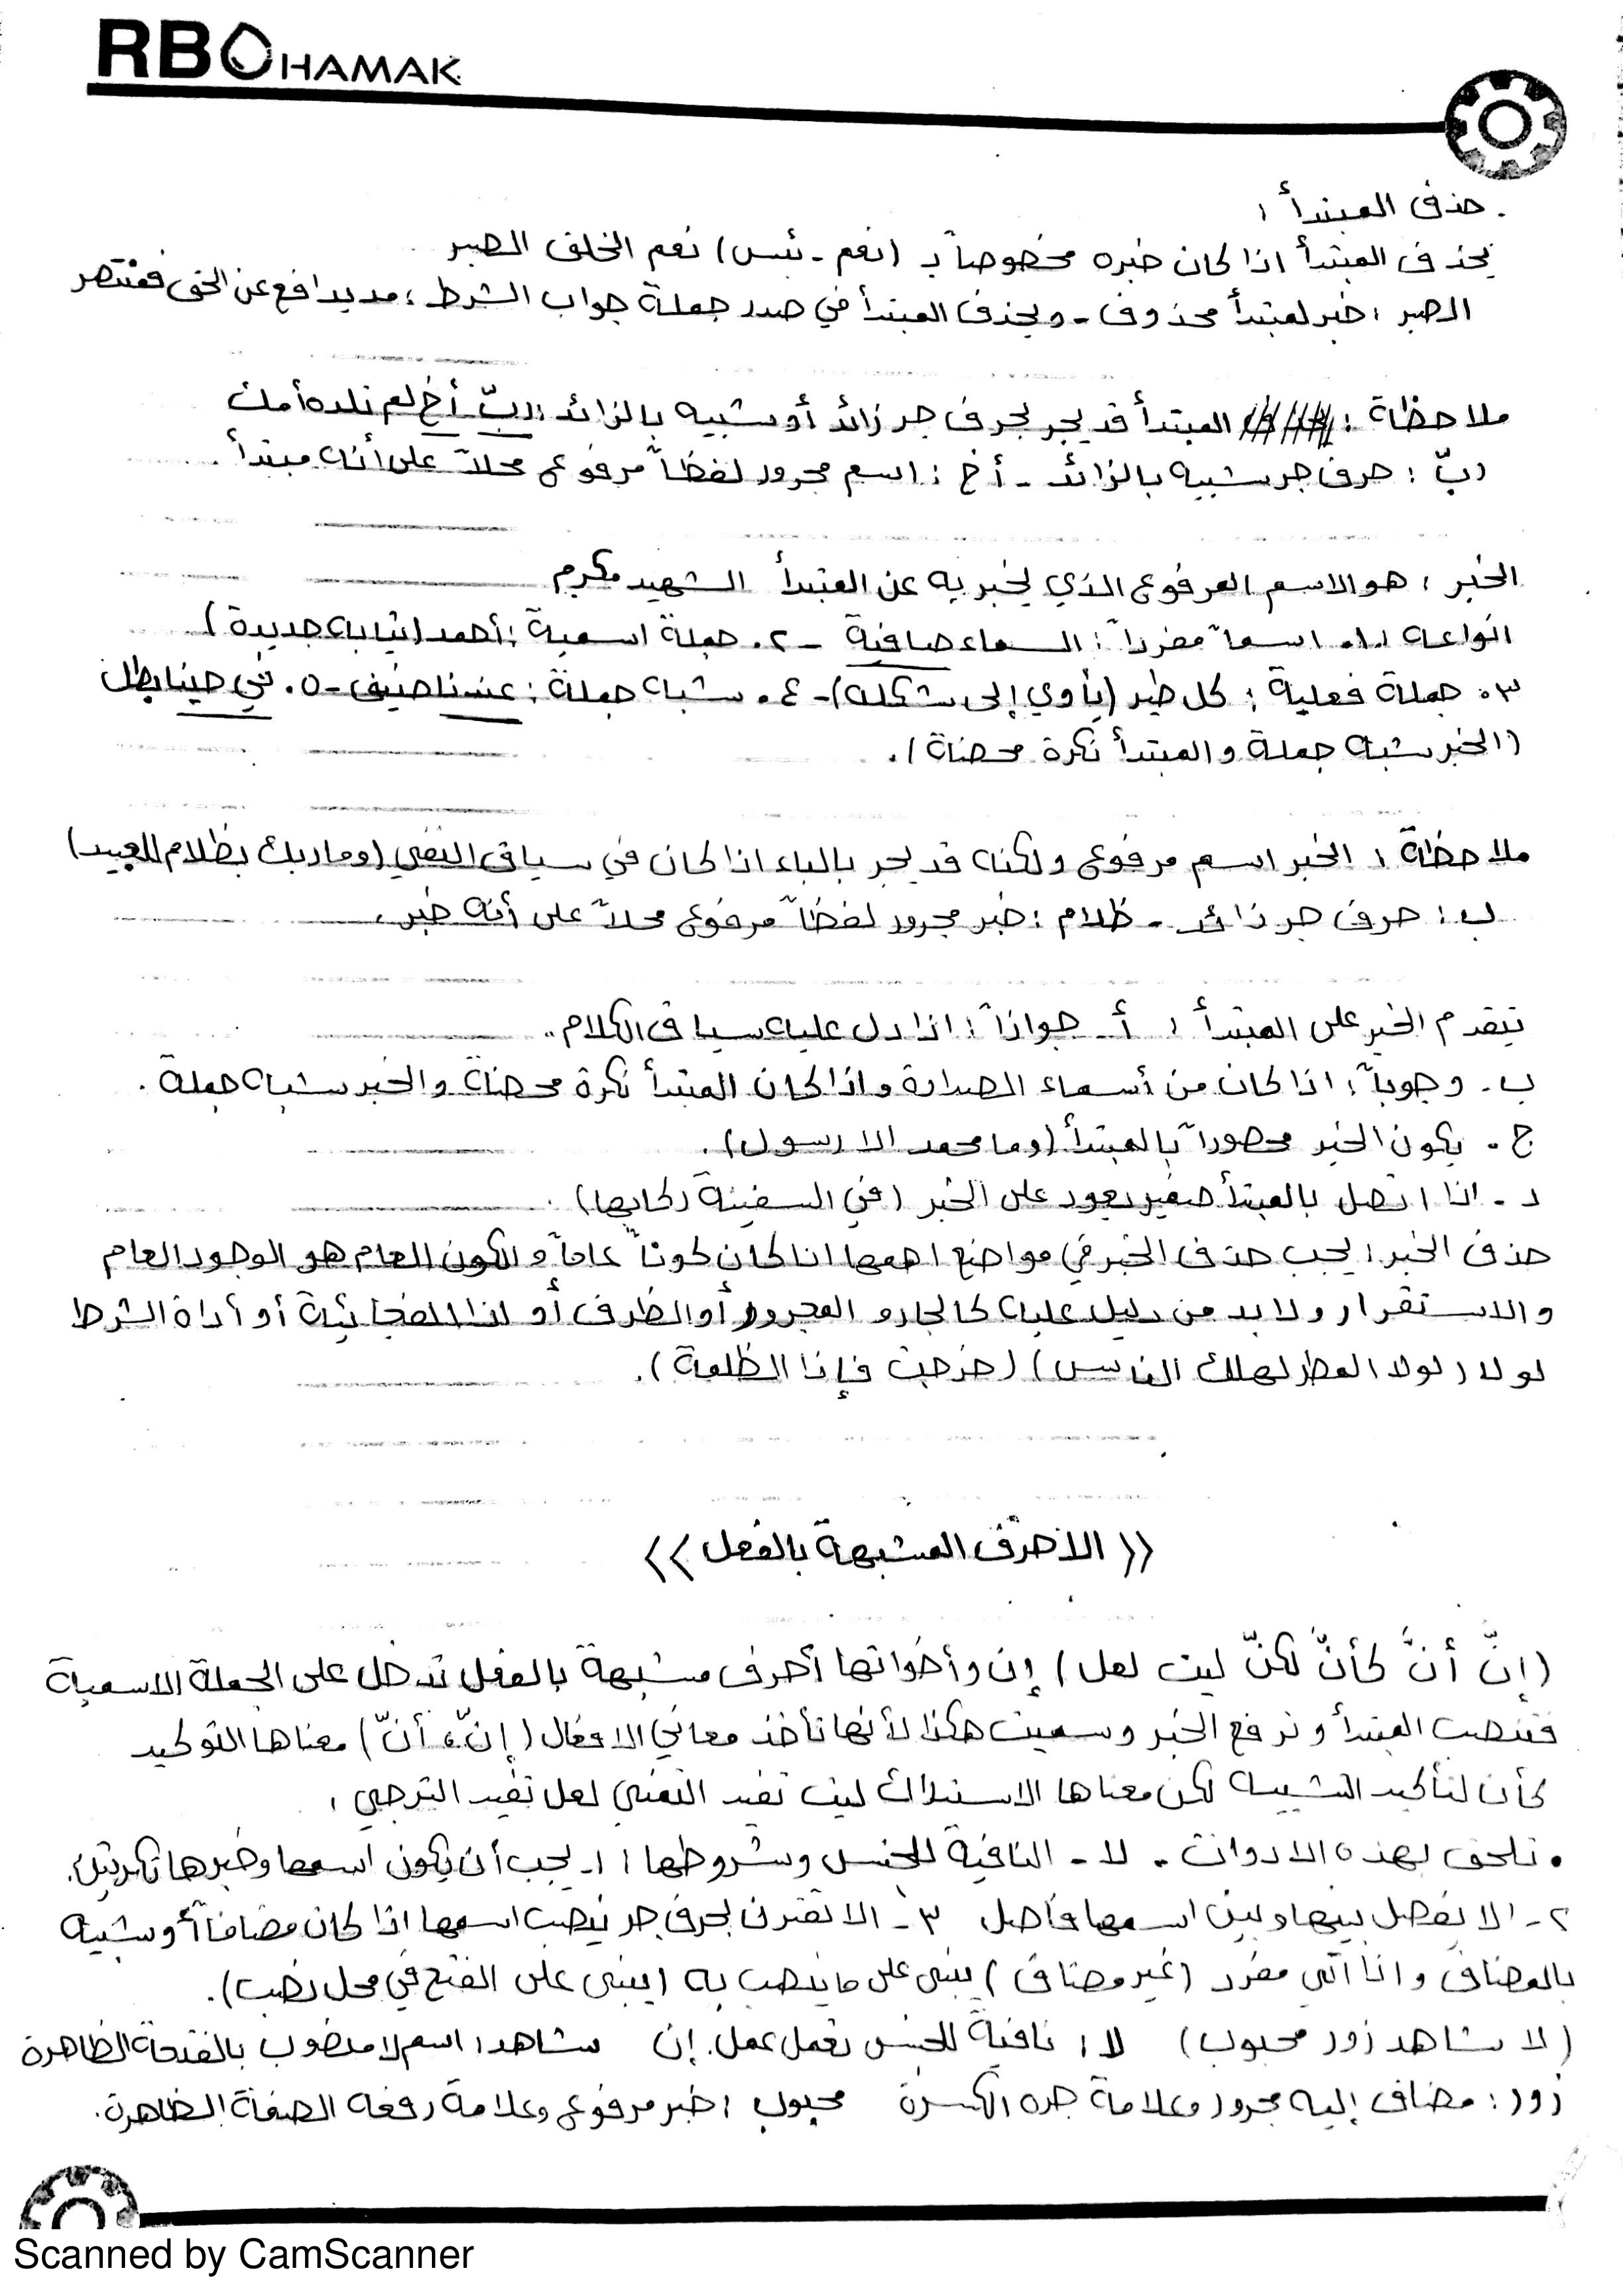 RBOHAMAK
. حذف المبتدأ :
يحذف المبتدأ اذا كان خبره مخصوصاً بـ (نعم - بئس) نعم الخلق الصبر
الصبر : خبر لمبتدأ محذوف - ويحذف المبتدأ في صدر جملة جواب الشرط : من يدافع عن الحق فمنتصر
ملاحظة : المبتدأ قد يجر بحرف جر زائد أو شبيه بالزائد : ربّ أخ لم تلده أمك
ربّ : حرف جر شبيه بالزائد - أخ : اسم مجرور لفظاً مرفوع محلاً على أنه مبتدأ .
الخبر : هو الاسم المرفوع الذي يخبر به عن المبتدأ الشهيد مكرم
انواعه : ١. اسماً مفرداً : السماء صافية - ٢. جملة اسمية : أحمد (ثيابه جديدة)
٣. جملة فعلية : كل طير (يأوي إلى شكله) - ٤. شبه جملة : عندنا ضيف - ٥. في حينا بطل
(الخبر شبه جملة والمبتدأ نكرة محضة) .
ملاحظة : الخبر اسم مرفوع ولكنه قد يجر بالباء اذا كان في سياق النفي (وما ربك بظلام للعبيد)
بـ : حرف جر زائد - ظلام : خبر مجرور لفظاً مرفوع محلاً على أنه خبر .
يتقدم الخبر على المبتدأ : أ- جوازاً : اذا دل عليه سياق الكلام ..
ب- وجوباً : اذا كان من أسماء الصدارة واذا كان المبتدأ نكرة محضة والخبر شبه جملة .
ج- يكون الخبر محصوراً بالمبتدأ (وما محمد الا رسول) .
د- اذا اتصل بالمبتدأ ضمير يعود على الخبر (في السفينة ركابها) .
حذف الخبر : يجب حذف الخبر في مواضع اهمها اذا كان كوناً عاماً والكون العام هو الوجود العام
والاستقرار ولا بد من دليل عليه كالجار و المجرور أو الظرف أو اذا الفجائية أو أداة الشرط
لولا (لولا المطر لهلك الناس) (خرجت فإذا الظلمة) .
(( الاحرف المشبهة بالفعل ))
(إنّ أنّ كأنّ لكنّ ليت لعل) إن وأخواتها أحرف مشبهة بالفعل تدخل على الجملة الاسمية
فتنصب المبتدأ وترفع الخبر وسميت هكذا لأنها تأخذ معاني الافعال (إنّ ، أنّ) معناها التوكيد
كأن لتأكيد التشبيه لكن معناها الاستدراك ليت تفيد التمني لعل تفيد الترجي .
. تلحق بهذه الادوات - لا - النافية للجنس وشروطها : ١- يجب أن يكون اسمها وخبرها نكرتين.
٢- الا يفصل بينها وبين اسمها فاصل ٣- الا تقترن بحرف جر ينصب اسمها اذا كان مضافاً أو شبيه
بالمضاف واذا اتى مفرد (غير مضاف) يبنى على ما ينصب به (يبنى على الفتح في محل نصب) .
(لا شاهد زور محبوب) لا : نافية للجنس تعمل عمل إن شاهد : اسم لا منصوب بالفتحة الظاهرة
زور : مضاف إليه مجرور وعلامة جره الكسرة محبوب : خبر مرفوع وعلامة رفعه الضمة الظاهرة.
Scanned by CamScanner